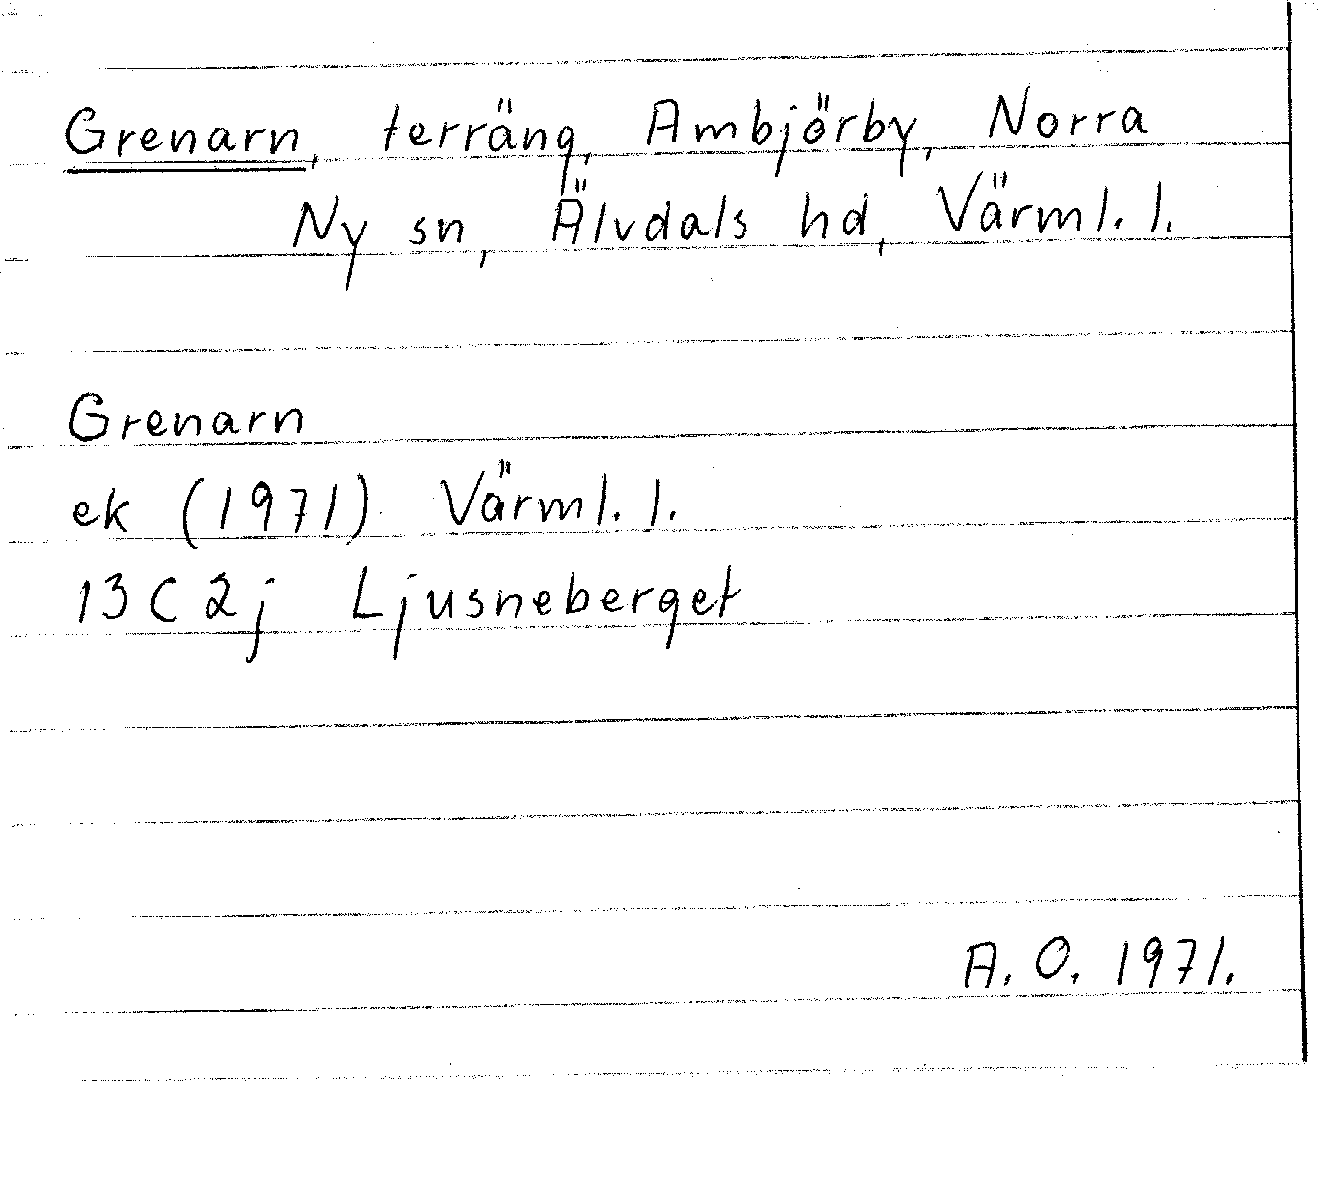 Grenarn, terräng, Ambjörby, Norra
Ny sn, Älvdals hd, Värml. l.
Grenarn
ek (1971) Värml. l.
13 C 2j Ljusneberget
A. O. 1971.